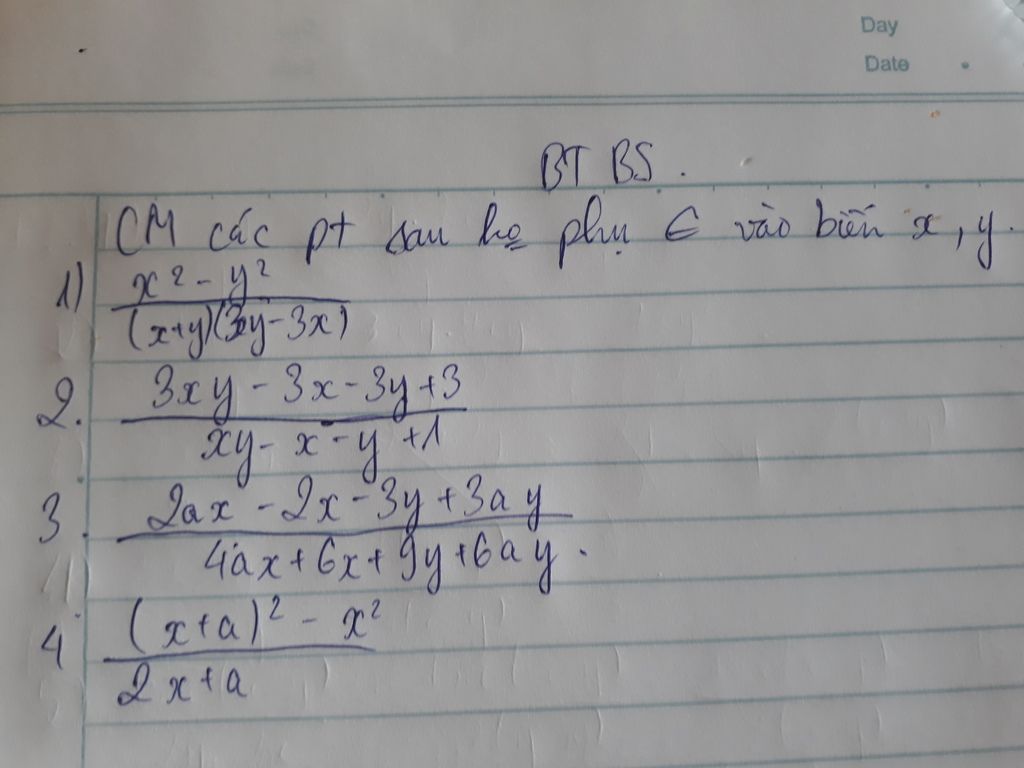 Day
Date
BT BS.
CM các pt sau ko phụ ∈ vào biến x, y.
1) x² - y²
(x+y)(3y-3x)
2. 3xy - 3x - 3y + 3
xy - x - y + 1
3. 2ax - 2x - 3y + 3ay
4ax + 6x + 9y + 6ay.
4 (x+a)² - x²
2x + a